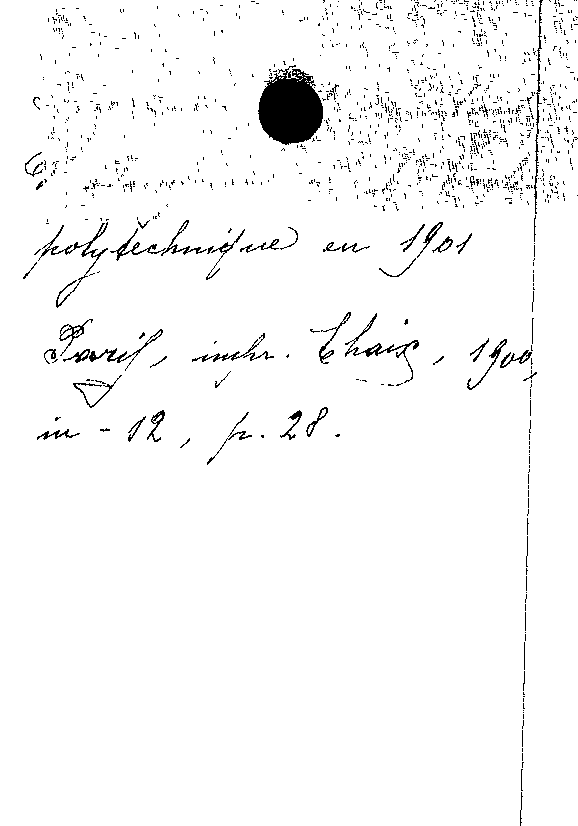 polytechnique en 1901
Paris, impr. Chaix, 1900,
in-12, p. 28.